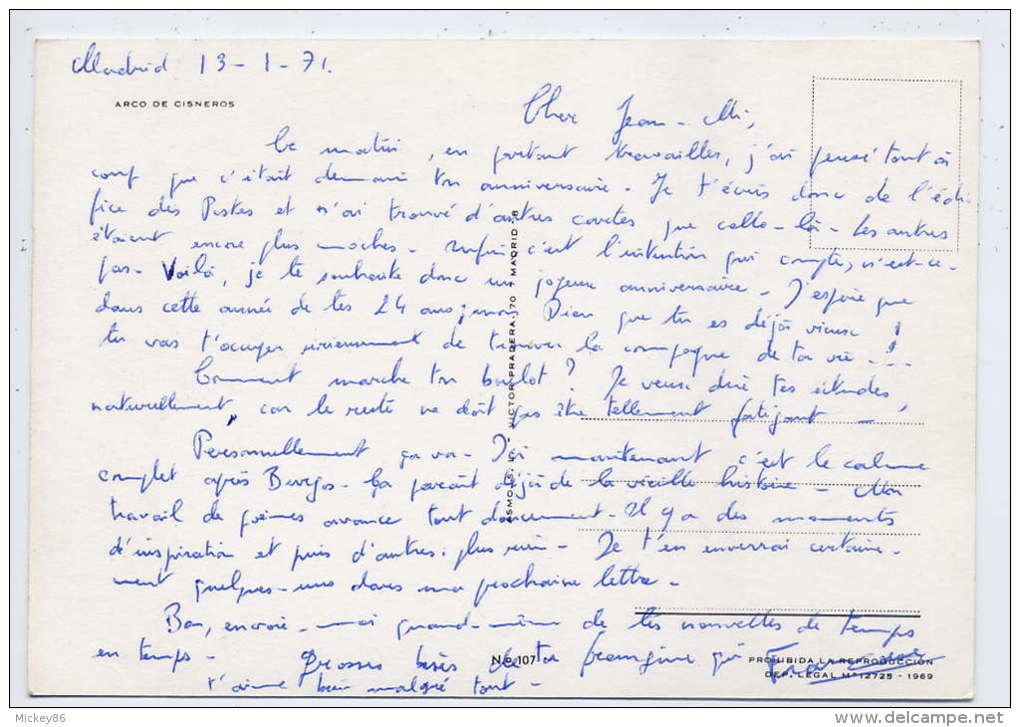 Madrid 13-1-71.
ARCO DE CISNEROS
Cher Jean-Mi,
Ce matin, en partant travailler, j'ai pensé tout à
coup que c'était demain ton anniversaire. Je t'écris donc de l'édi-
fice des Postes et n'ai trouvé d'autres cartes que celle-là. Les autres
étaient encore plus moches. Enfin c'est l'intention qui compte, n'est-ce-
pas. Voilà, je te souhaite donc un joyeux anniversaire. J'espère que
dans cette année de tes 24 ans, mon Dieu que tu es déjà vieux !
tu vas t'occuper sérieusement de trouver la compagne de ta vie - !..
Comment marche ton boulot ? Je veux dire tes études,
naturellement, car le reste ne doit pas être tellement fatigant -
Personnellement ça va. Ici maintenant c'est le calme
complet après Burgos. Ça paraît déjà de la vieille histoire - Mon
travail de poèmes avance tout doucement. Il y a des moments
d'inspiration et puis d'autres: plus rien - Je t'en enverrai certaine-
ment quelques-uns dans ma prochaine lettre -
Bon, envoie-moi quand-même de tes nouvelles de temps
en temps - Grosses bises de ta frangine qui
t'aime bien malgré tout - Françoise
VICTOR PRADERA, 70 - MADRID-8
N.º 107
PROHIBIDA LA REPRODUCCIÓN
DEP. LEGAL M-12725 - 1969
Mickey86
delcampe.net